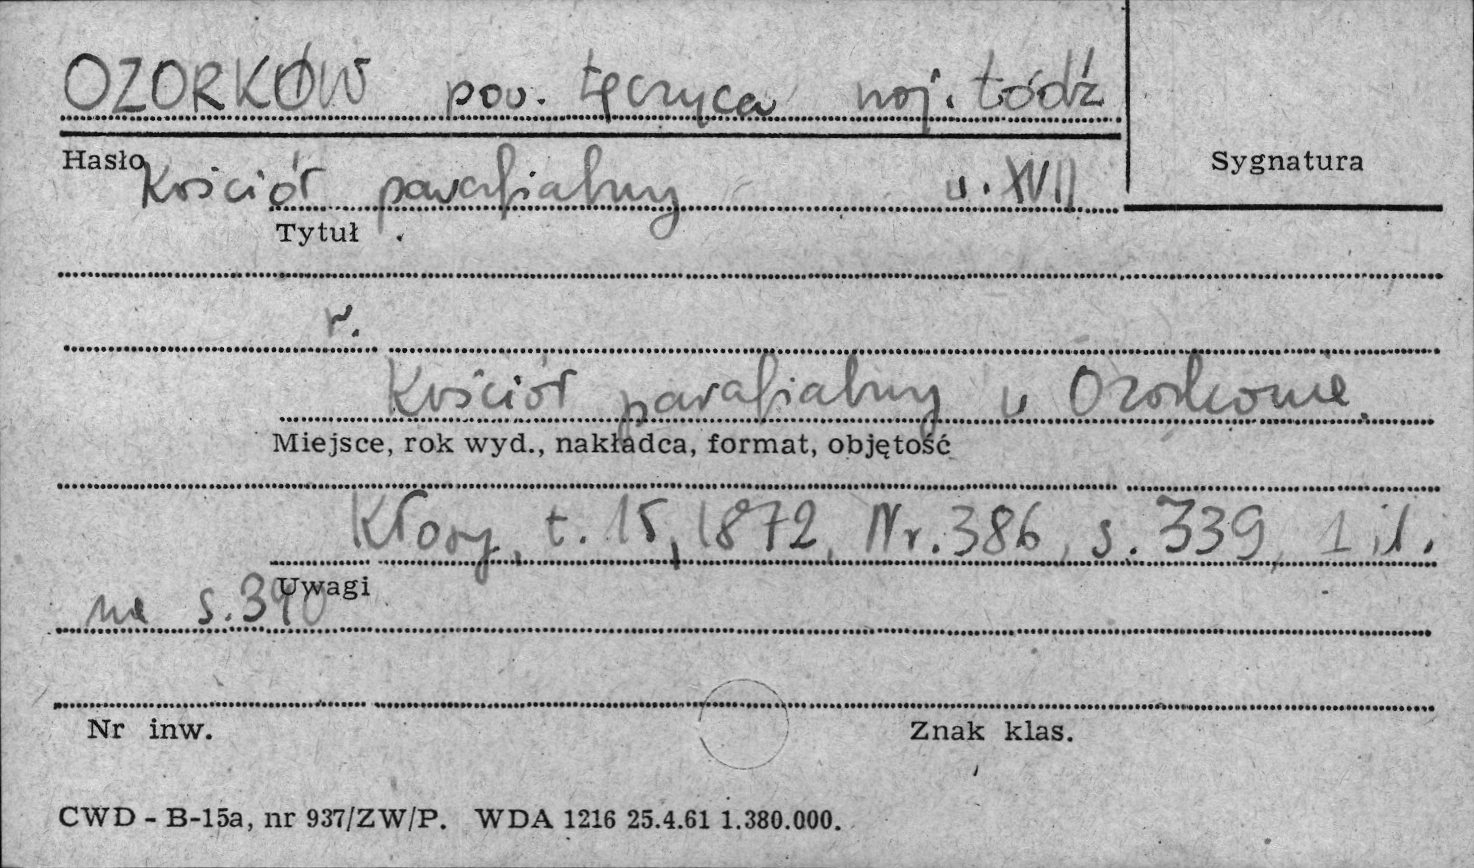 OZORKÓW pow. Łęczyca woj. Łódź
Hasło
Sygnatura
Kościół parafialny w. XVII
Tytuł
r.
Kościół parafialny w Ozorkowie.
Miejsce, rok wyd., nakładca, format, objętość
Kłosy, t. 15, 1872, Nr. 386, s. 339, 1 il.
Uwagi
na s. 340
Nr inw.
Znak klas.
CWD - B-15a, nr 937/ZW/P. WDA 1216 25.4.61 1.380.000.